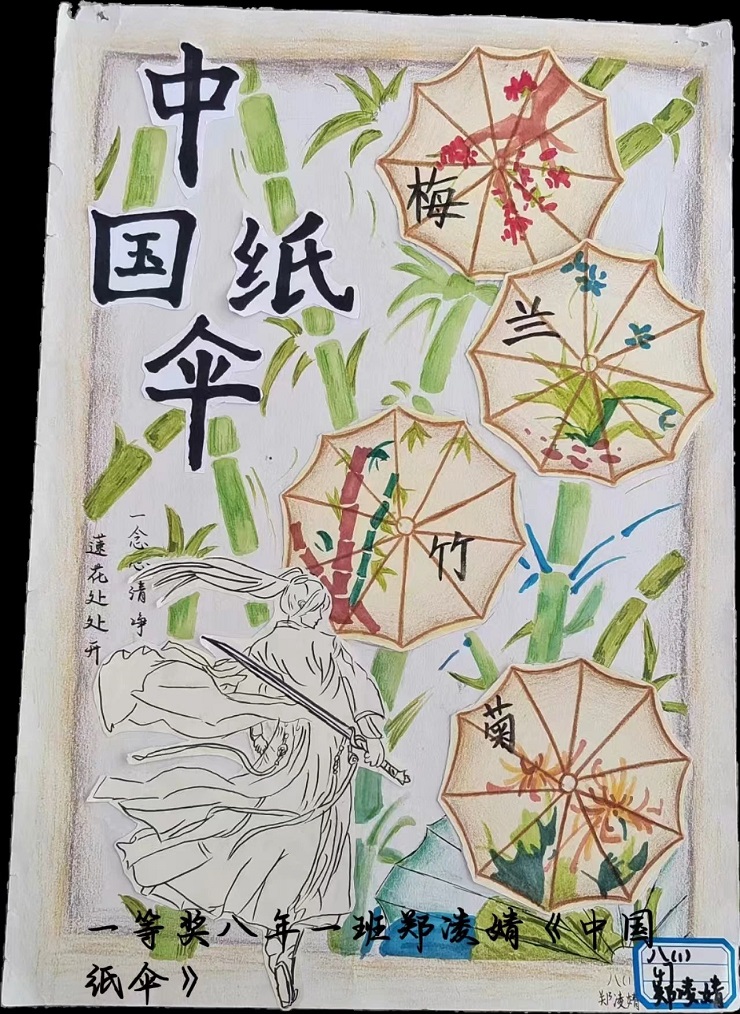 中
国纸
伞
梅
兰
竹
菊
一念心清净
莲花处处开
一等奖八年一班郑凌婧《中国
纸伞》
八(1)
郑凌婧
八(1)
郑凌婧